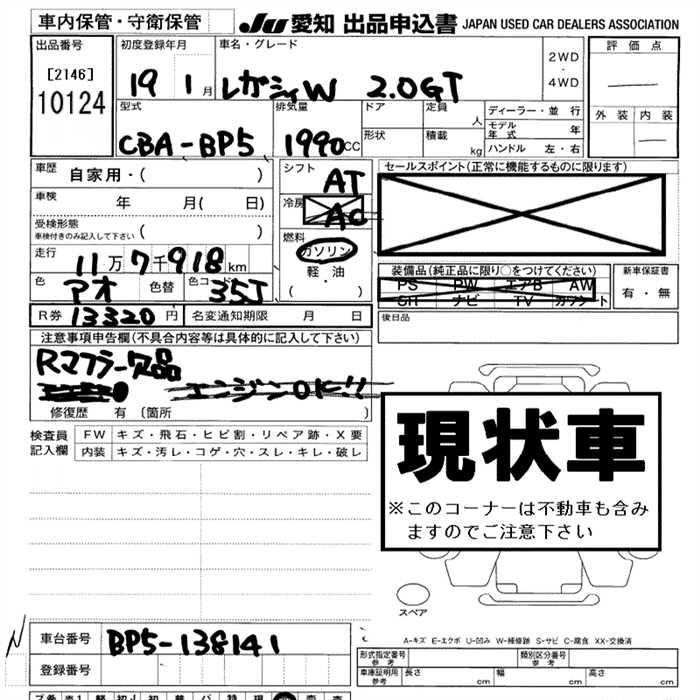 車内保管・守衛保管 JU 愛知 出品申込書 JAPAN USED CAR DEALERS ASSOCIATION
出品番号 初度登録年月 車名・グレード 評価点
[2146] 19 1月 レガシィW 2.0GT 2WD・4WD
10124 外装 内装
型式 排気量 ドア 定員 人 ディーラー・並行
モデル年式 年
CBA-BP5 1990cc 形状 積載 kg ハンドル 左・右
車歴 自家用・( ) シフト AT セールスポイント(正常に機能するものに限ります)
車検 年 月( 日) 冷房 AC
受検形態
車検付きのみ記入して下さい ( ) 燃料 ガソリン
走行 11万7千918km 軽・油 装備品(純正品に限り○をつけてください) 新車保証書
色 アオ 色替 色コード 35J (・) PS PW エアB AW 有・無
SR ナビ TV カワシート
R券 13320円 名変通知期限 月 日 後日品
注意事項申告欄(不具合内容等は具体的に記入して下さい)
Rマフラー欠品
エンジンOK!!
修復歴 有 〔箇所 〕
検査員 FW キズ・飛石・ヒビ割・リペア跡・X要
記入欄 内装 キズ・汚レ・コゲ・穴・スレ・キレ・破レ
現状車
※このコーナーは不動車も含み
ますのでご注意下さい
スペア
N 車台番号 BP5-138141
A-キズ E-エクボ U-凹み W-補修跡 S-サビ C-腐食 XX-交換済
登録番号
形式指定番号 参考 類別区分番号 参考
車庫証明用 参考 長さ cm 幅 cm 高さ cm